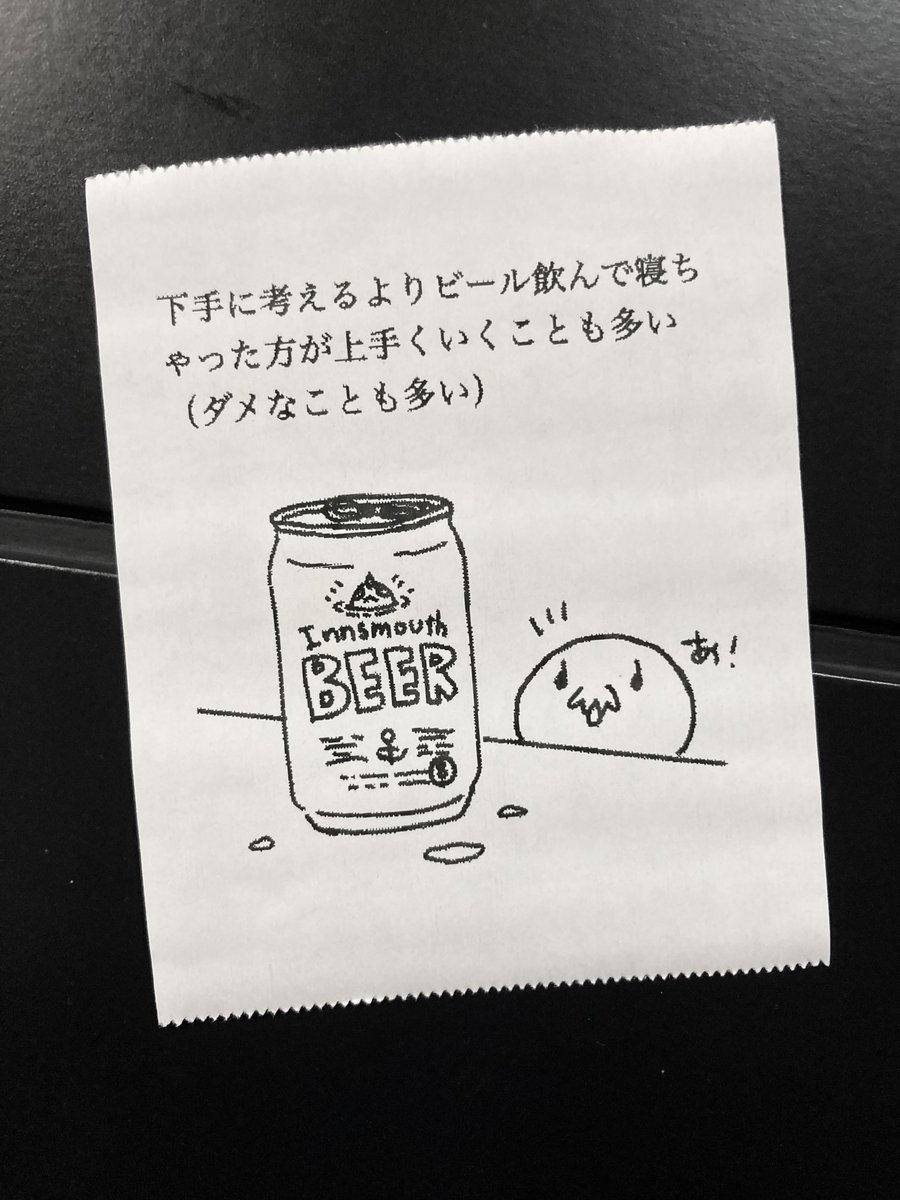 下手に考えるよりビール飲んで寝ち
やった方が上手くいくことも多い
(ダメなことも多い)
Innsmouth
BEER
あっ!